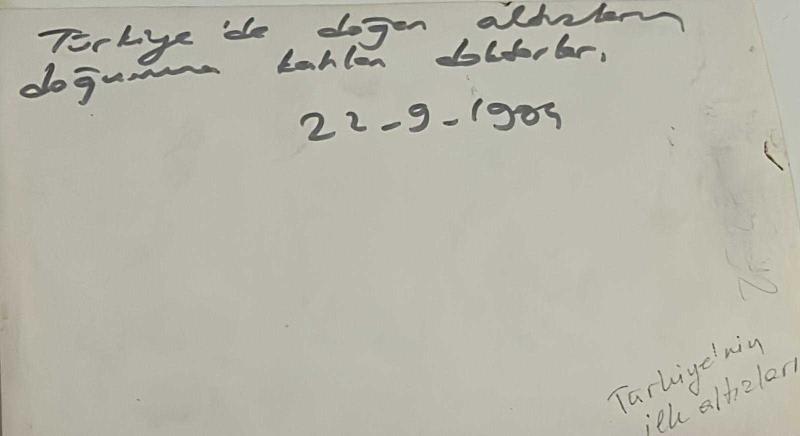 Türkiye'de doğan altızların
doğumuna katılan doktorlar.
22-9-1984
Türkiye'nin
ilk altızları